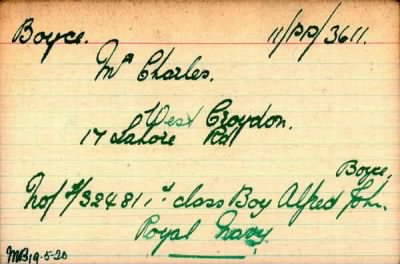 Boyce. 11/PP/3611.
Mr Charles.
West Croydon.
17 Lahore Rd
Boyce,
No J/32481 1st class Boy Alfred John.
Royal Navy.
MB19-5-20